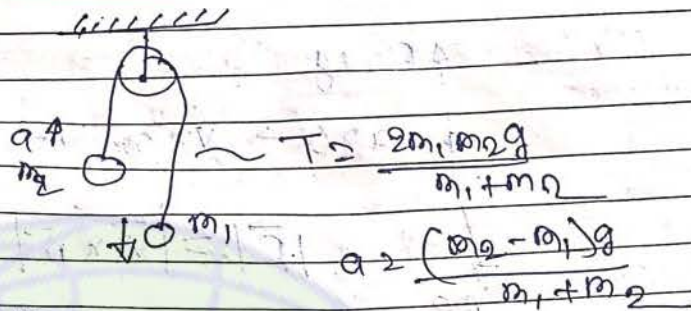 a ↑
m2
m1
T = 2m1 m2 g / m1 + m2
a = (m2 - m1) g / m1 + m2